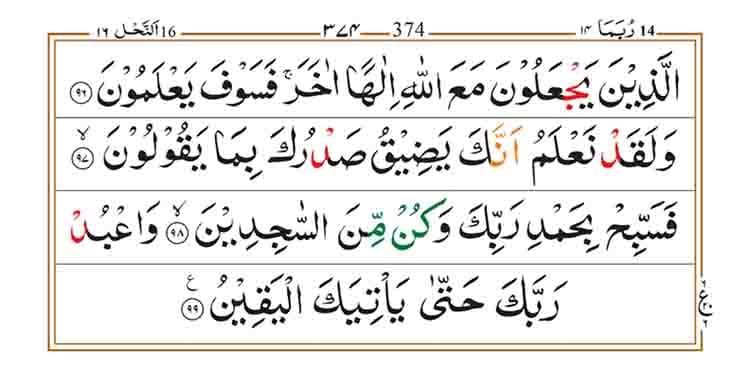 رُبَمَا 14 ۱۴ 374 ۳۷۴ اَلنَّحْل 16 ۱۶
الَّذِيْنَ يَجْعَلُوْنَ مَعَ اللّٰهِ اِلٰهًا اٰخَرَ ۚ فَسَوْفَ يَعْلَمُوْنَ ۹۶
وَلَقَدْ نَعْلَمُ اَنَّكَ يَضِيْقُ صَدْرُكَ بِمَا يَقُوْلُوْنَ ۙ ۹۷
فَسَبِّحْ بِحَمْدِ رَبِّكَ وَكُنْ مِّنَ السّٰجِدِيْنَ ۙ ۹۸ وَاعْبُدْ
رَبَّكَ حَتّٰى يَاْتِيَكَ الْيَقِيْنُ ۹۹ ع